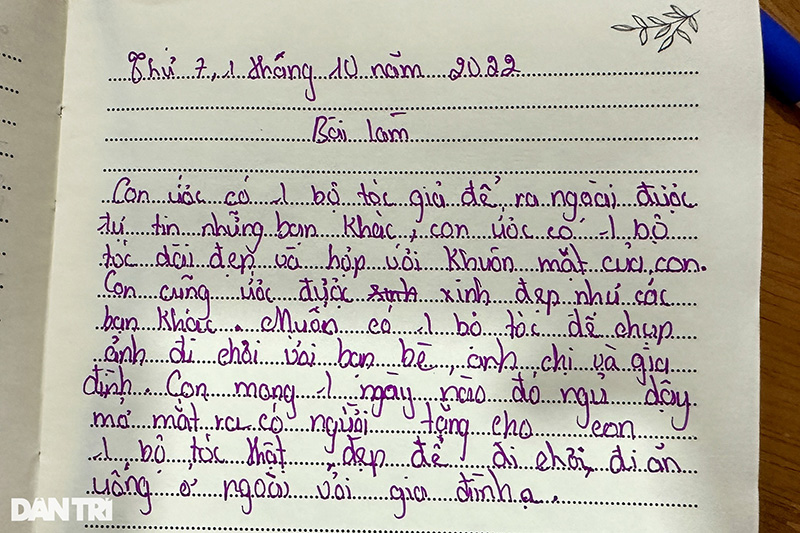 Thứ 7, 1 tháng 10 năm 2022
Bài làm
Con ước có 1 bộ tóc giả để ra ngoài được
tự tin những bạn khác, con ước có 1 bộ
tóc dài đẹp và hợp với khuôn mặt của con.
Con cũng ước được xinh xinh đẹp như các
bạn khác. Muốn có 1 bộ tóc để chụp
ảnh đi chơi với bạn bè, anh, chị và gia
đình. Con mong 1 ngày nào đo ngủ dậy
mơ mắt ra có người tặng cho con
1 bộ tóc thật đẹp để đi chơi, đi ăn
uống ơ ngoài với gia đình ạ.
DÂN TRÍ